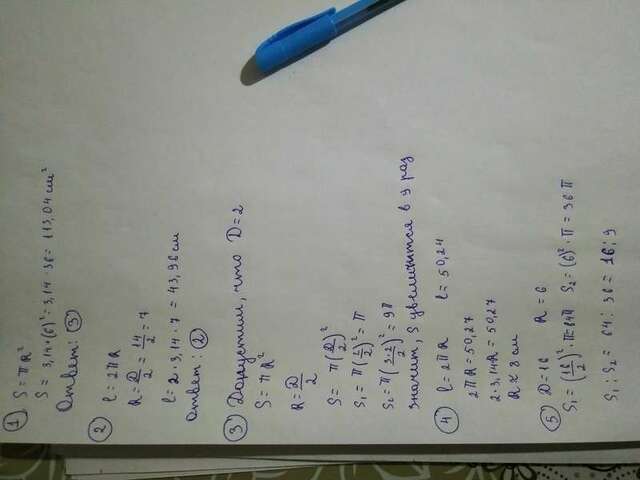 ① S = πR²
S = 3,14·(6)² = 3,14·36 = 113,04 см²
Ответ: ③
② l = 2πR
R = D/2 = 14/2 = 7
l = 2·3,14·7 = 43,96 см
Ответ: ②
③ Допустим, что D = 2
S = πR²
R = D/2
S = π(D/2)²
S₁ = π(2/2)² = π
S₂ = π(3·2/2)² = 9π
значит, S увеличится в 9 раз
④ l = 2πR l = 50,24
2πR = 50,27
2·3,14R = 50,27
R ≈ 8 см
⑤ D = 16 R = 6
S₁ = (16/2)²·π = 64π S₂ = (6)²·π = 36π
S₁ : S₂ = 64 : 36 = 16 : 9